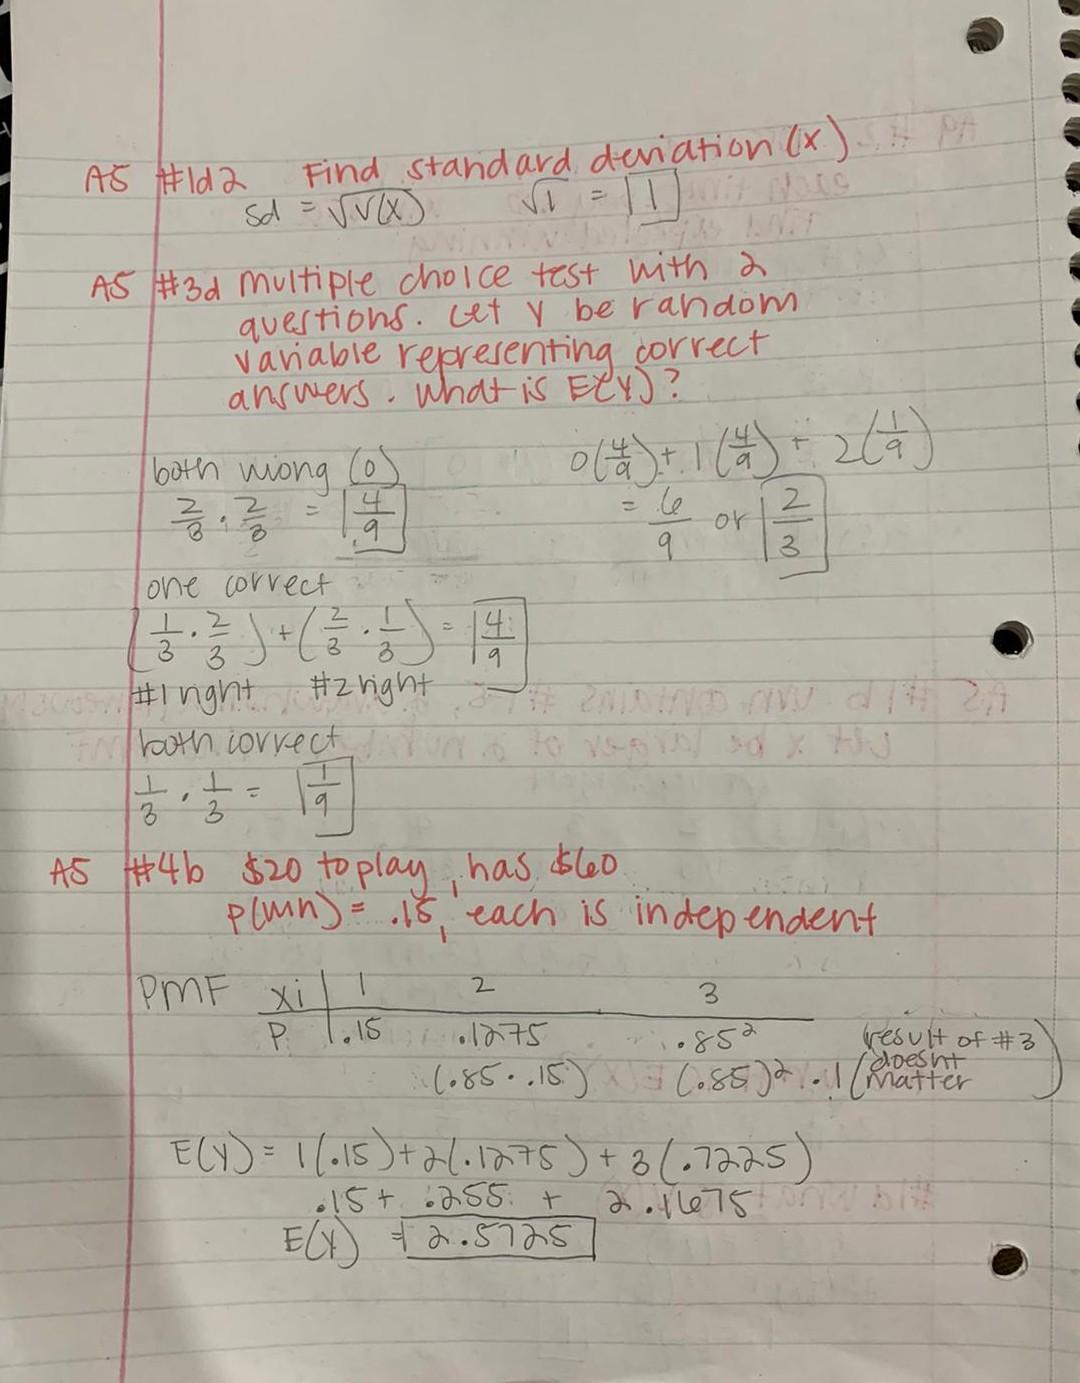 A5 #1d2 Find standard deviation (x)
sd = √V(X) √1 = 1
A5 #3d multiple choice test with 2
questions. Let Y be random
variable representing correct
answers. What is E(Y)?
both wrong (0) 0(4/9) + 1(4/9) + 2(1/9)
2/3 · 2/3 = 4/9 = 6/9 or 2/3
one correct
(1/3 · 2/3) + (2/3 · 1/3) = 4/9
#1 right #2 right
both correct
1/3 · 1/3 = 1/9
A5 #4b $20 to play, has $60
P(win) = .15, each is independent
PMF xi 1 2 3
P .15 .1275 .85² (result of #3
(.85 · .15) (.85)² · 1 doesnt
matter)
E(Y) = 1(.15) + 2(.1275) + 3(.7225)
.15 + .255 + 2.1675
E(Y) = 2.5725